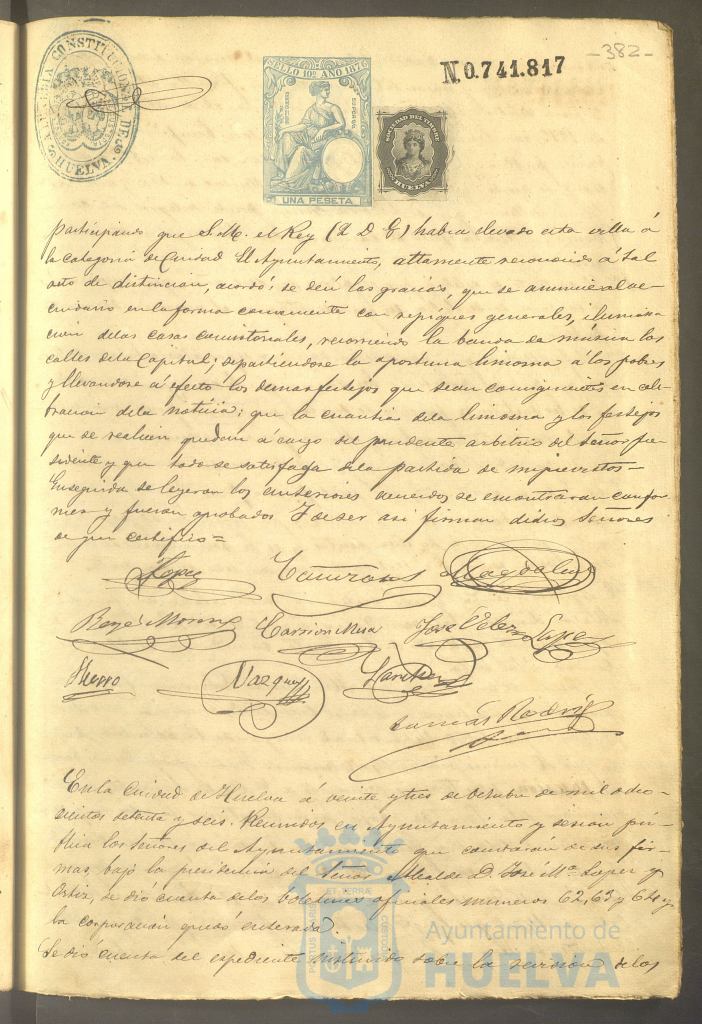 ALCALDIA CONSTITUCIONAL DE HUELVA
SELLO 10º AÑO 1876
UNA PESETA
SOCIEDAD DEL TIMBRE
HUELVA
N 0.741.817
-382-
participando que S. M. el Rey (Q D G) habia elevado esta villa á
la categoria de Ciudad El Ayuntamiento, altamente reconocido á tal
acto de distincion, acordó: se den las gracias, que se anuncie al ve-
cindario en la forma conveniente con repiques generales, ilumina
cion de las casas consistoriales, recorriendo la banda de música las
calles de la Capital; repartiendose la oportuna limosna á los pobres
y llevandose á efecto los demas festejos que sean consiguientes en cele-
bracion de la noticia; que la cuantia de la limosna y los festejos
que se realicen queden á cargo del prudente arbitrio del Señor Pre
sidente y que todo se satisfaga de la partida de imprevistos=
Enseguida se leyeron los anteriores acuerdos se encontraron confor
mes y fueron aprobados Y de ser asi firman dichos Señores
de que certifico=
Lopez
Magdalena
Moreno
Carrion Mesa
José Velez Lopez
Hierro
Vazquez
Sanchez
Tomás Rodrig
En la Ciudad de Huelva á veinte y tres de Octubre de mil ocho-
cientos setenta y seis. Reunidos en Ayuntamiento y sesion pú-
blica los señores del Ayuntamiento que constarán de sus fir-
mas, bajo la presidencia del Señor Alcalde D. José Mª Lopez y
Ortiz, se dio cuenta de los boletines oficiales numeros 62, 63 y 64 y
la corporacion quedó enterada.
Se dió cuenta del expediente instruido sobre la revision de los
PORTUS MARIS ET TERRAE CUSTODIA
Ayuntamiento de
HUELVA